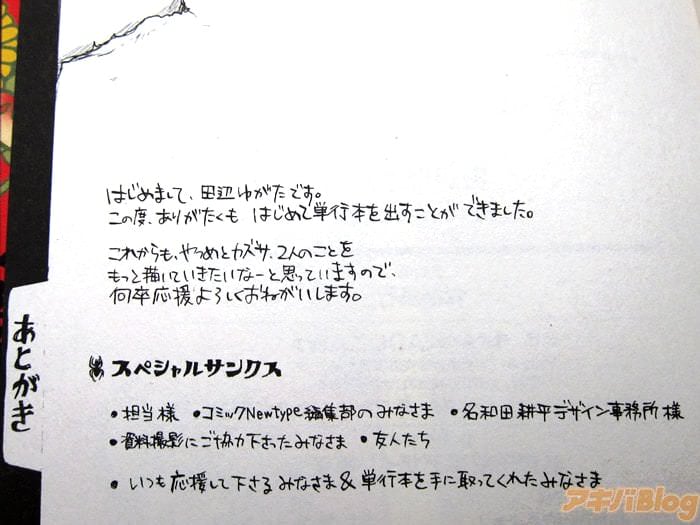 はじめまして、田辺ゆがたです。
この度、ありがたくも はじめて単行本を出すことが できました。
これからも、やつめとカズサ、2人のことを
もっと描いていきたいなーと思っていますので、
何卒応援よろしくおねがいします。
あとがき
スペシャルサンクス
・担当様 ・コミックNewtype編集部のみなさま ・名和田耕平デザイン事務所様
・資料撮影にご協力下さったみなさま ・友人たち
・いつも応援して下さるみなさま&単行本を手に取ってくれたみなさま
アキバBlog